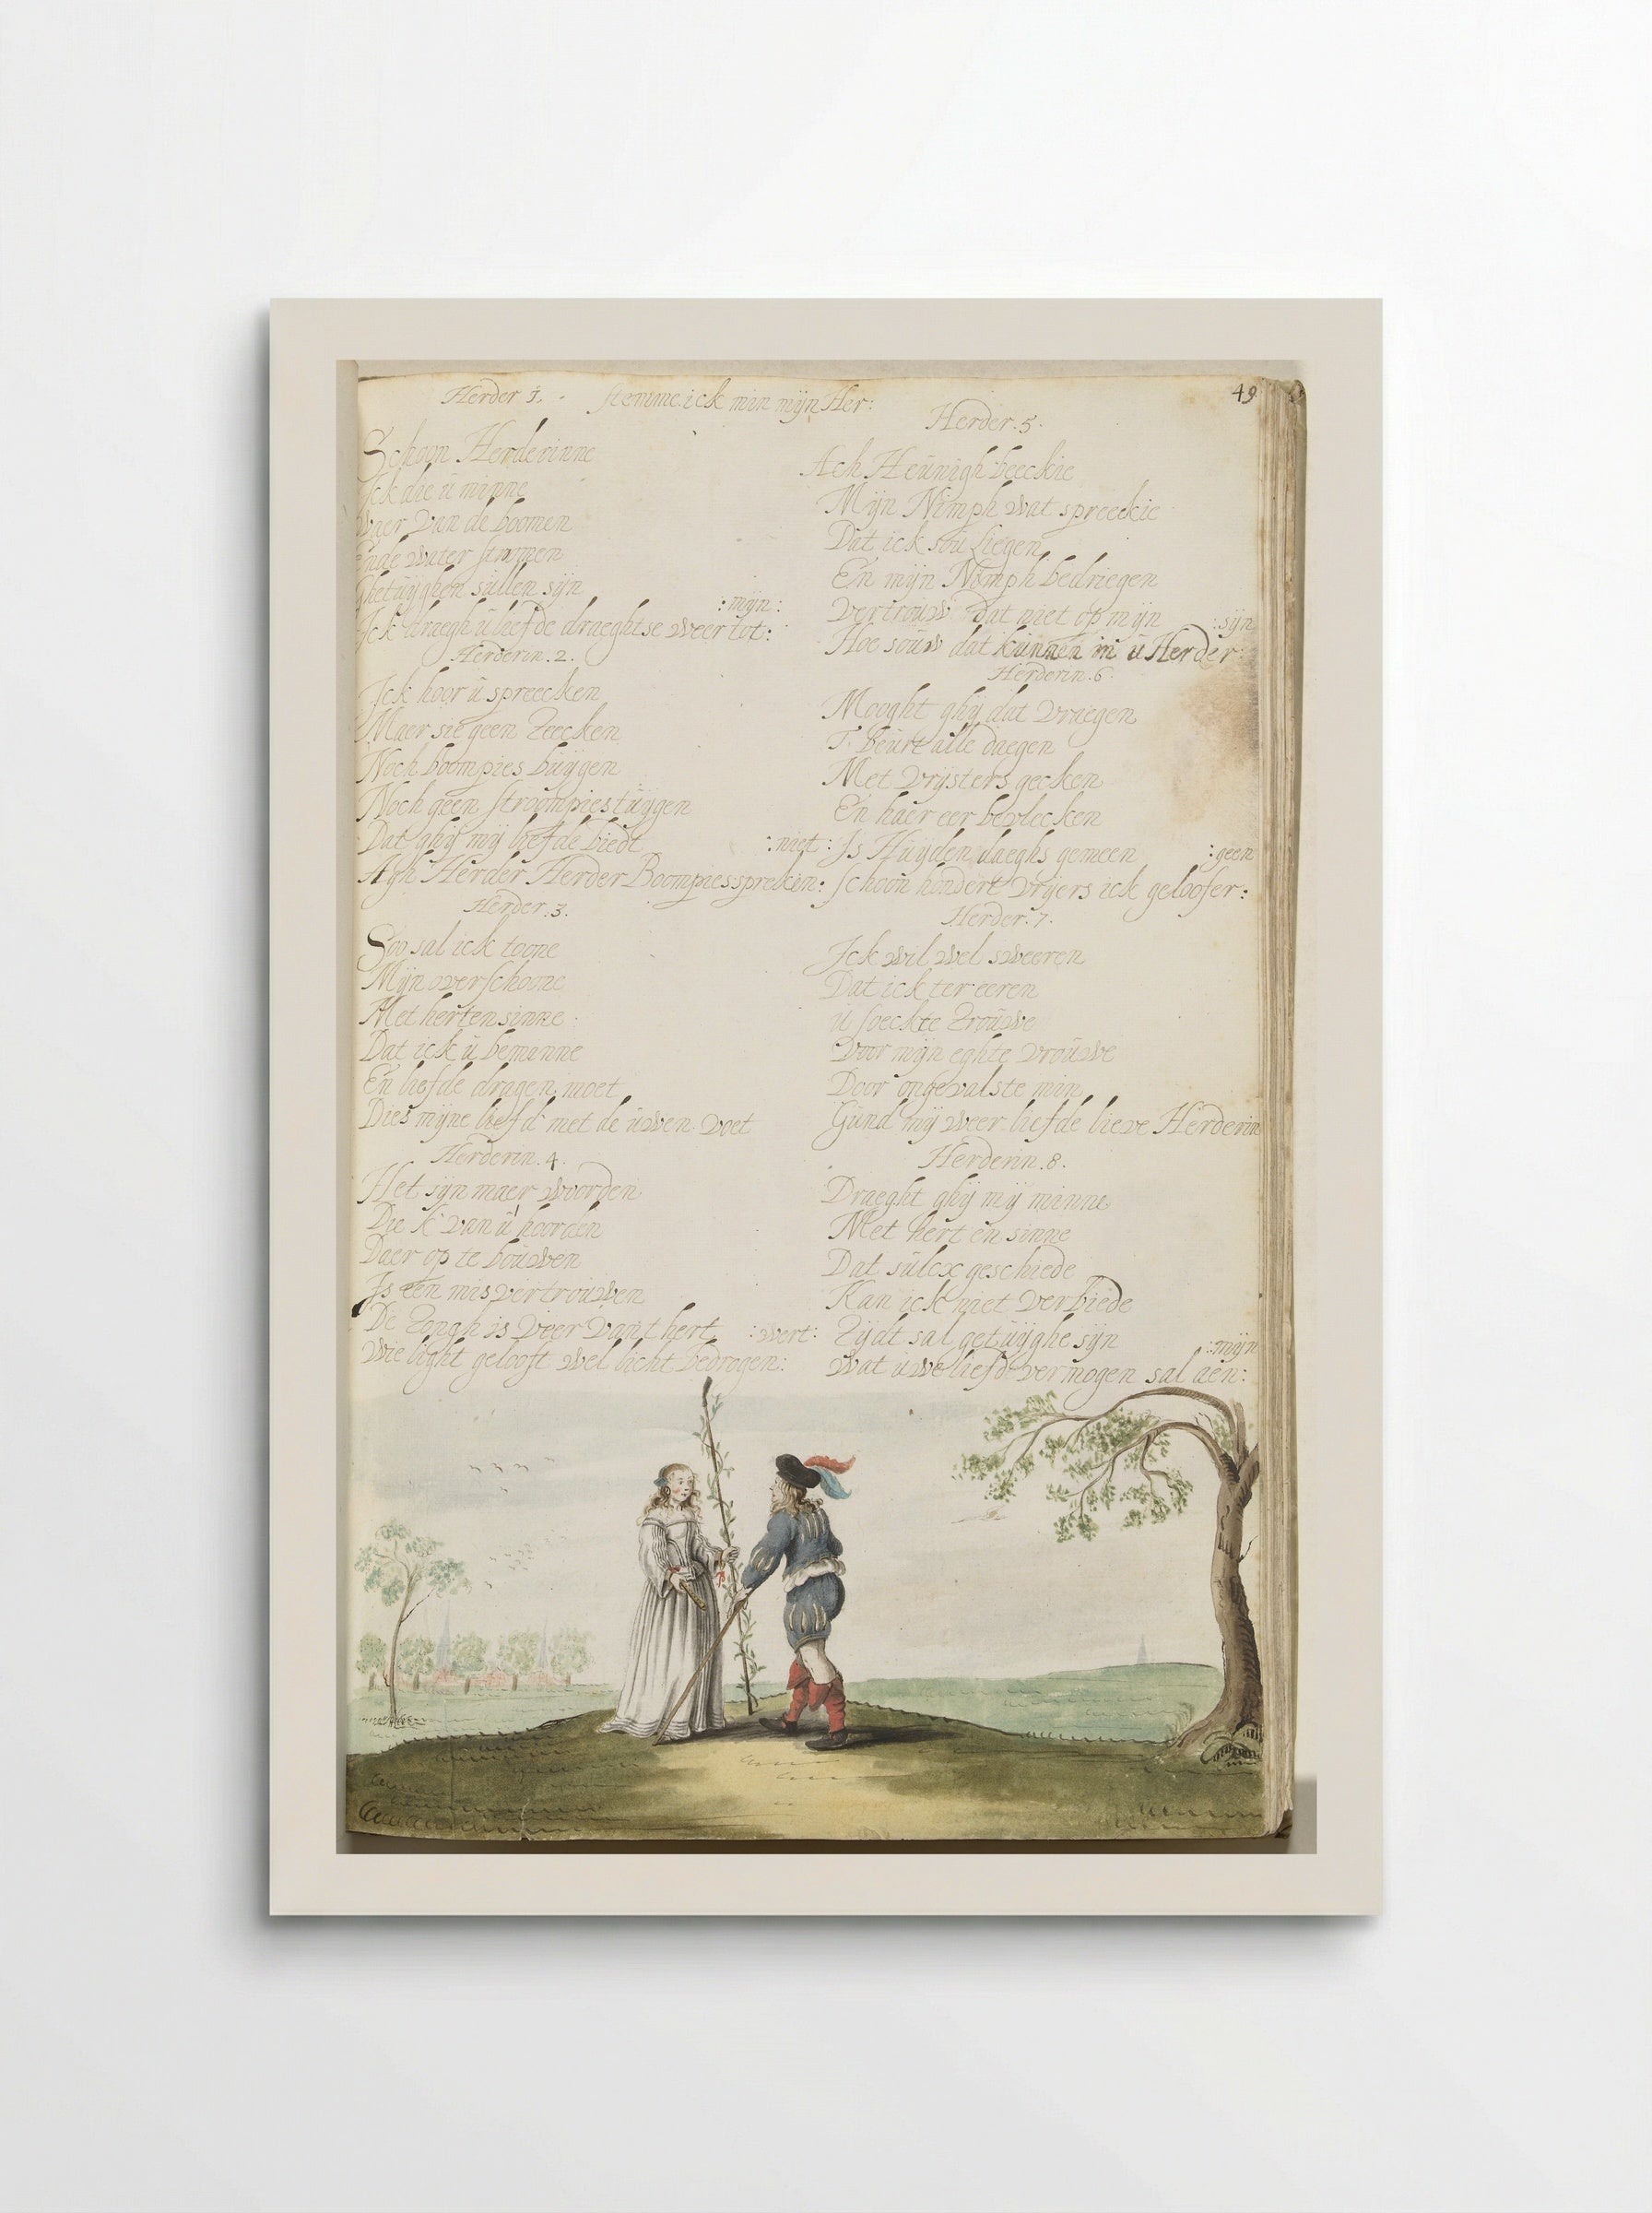 Herder 1. - stemme ick min mijn Her:
Schoon Herderinne
Ick die ü minne
Waer van de boomen
Ende water stromen
Ghetüÿghen süllen sijn
:mijn:
Ick draegh ü liefde draeghtse weer tot:
Herderin. 2.
Ick hoor ü spreecken
Maer sie geen Teecken
Noch boompies büÿgen
Noch geen stroompies tüÿgen
Dat ghij mij liefde biedt
:niet:
Agh Herder Herder Boompies spreken:
Herder. 3.
Soo sal ick toone
Mijn overschoone
Met hert en sinne
Dat ick ü beminne
En liefde dragen moet
Dies mijne liefd' met de üwen voet
Herderin. 4.
Het sijn maer woorden
Die 'k van ü hoorden
Daer op te boüwen
Is een misvertroüwen
De Tongh is veer vant hert
:wert:
Wie light gelooft wel licht bedrogen:
49
Herder. 5.
Ach Heünigh beeckie
Mijn Nimph wat spreekie
Dat ick soü Liegen
En mijn Nimph bedriegen
Vertroüw dat niet op mijn
:sijn
Hoe soüw dat künnen in ü Herder:
Herderin. 6.
Mooght ghij dat vraegen
T. Beürt alle daegen
Met vrijsters gecken
En haer eer bevlecken
Is Hüÿden daeghs gemeen
:geen
schoon hondert vrijers ick geloofer:
Herder. 7.
Ick wil wel sweeren
Dat ick ter eeren
ü soeckte Troüwe
Voor mijn eghte vroüwe
Door ongevalste min
Günd mij weer liefde lieve Herderin
Herderin. 8.
Draeght ghij mij minne
Met hert en sinne
Dat sülcx geschiede
Kan ick niet verbiede
Tijdt sal getüÿghe sijn
:mijn
Wat üwe liefd vermogen sal aen: